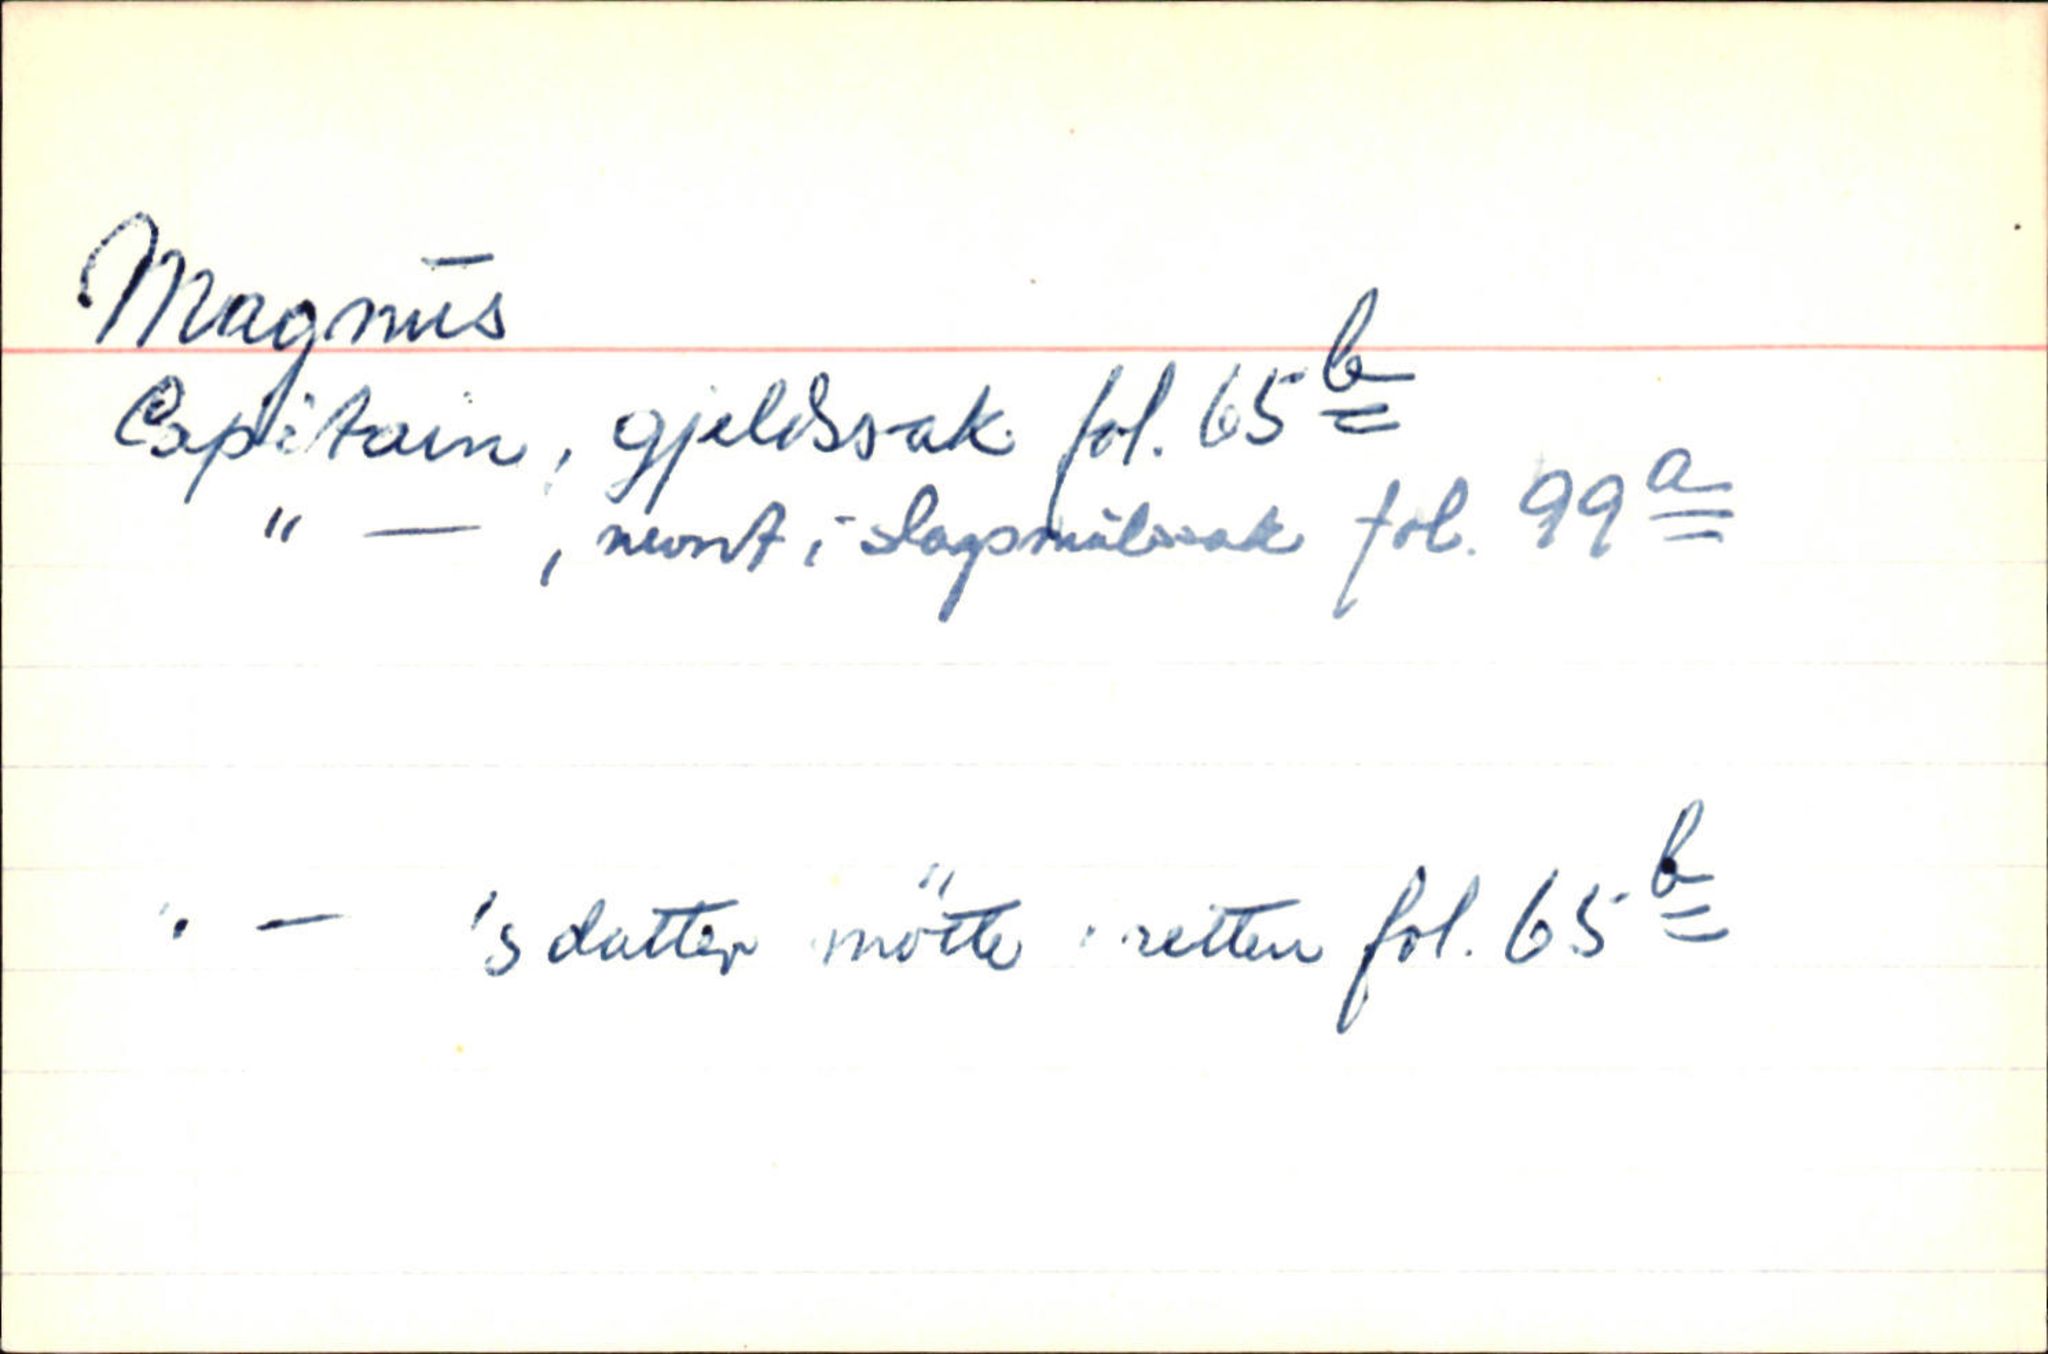 Magnus
Capitain, gjeldssak fol. 65 b
" — , nevnt i slagsmålssak fol. 99 a
" — 's datter mötte i retten fol. 65 b